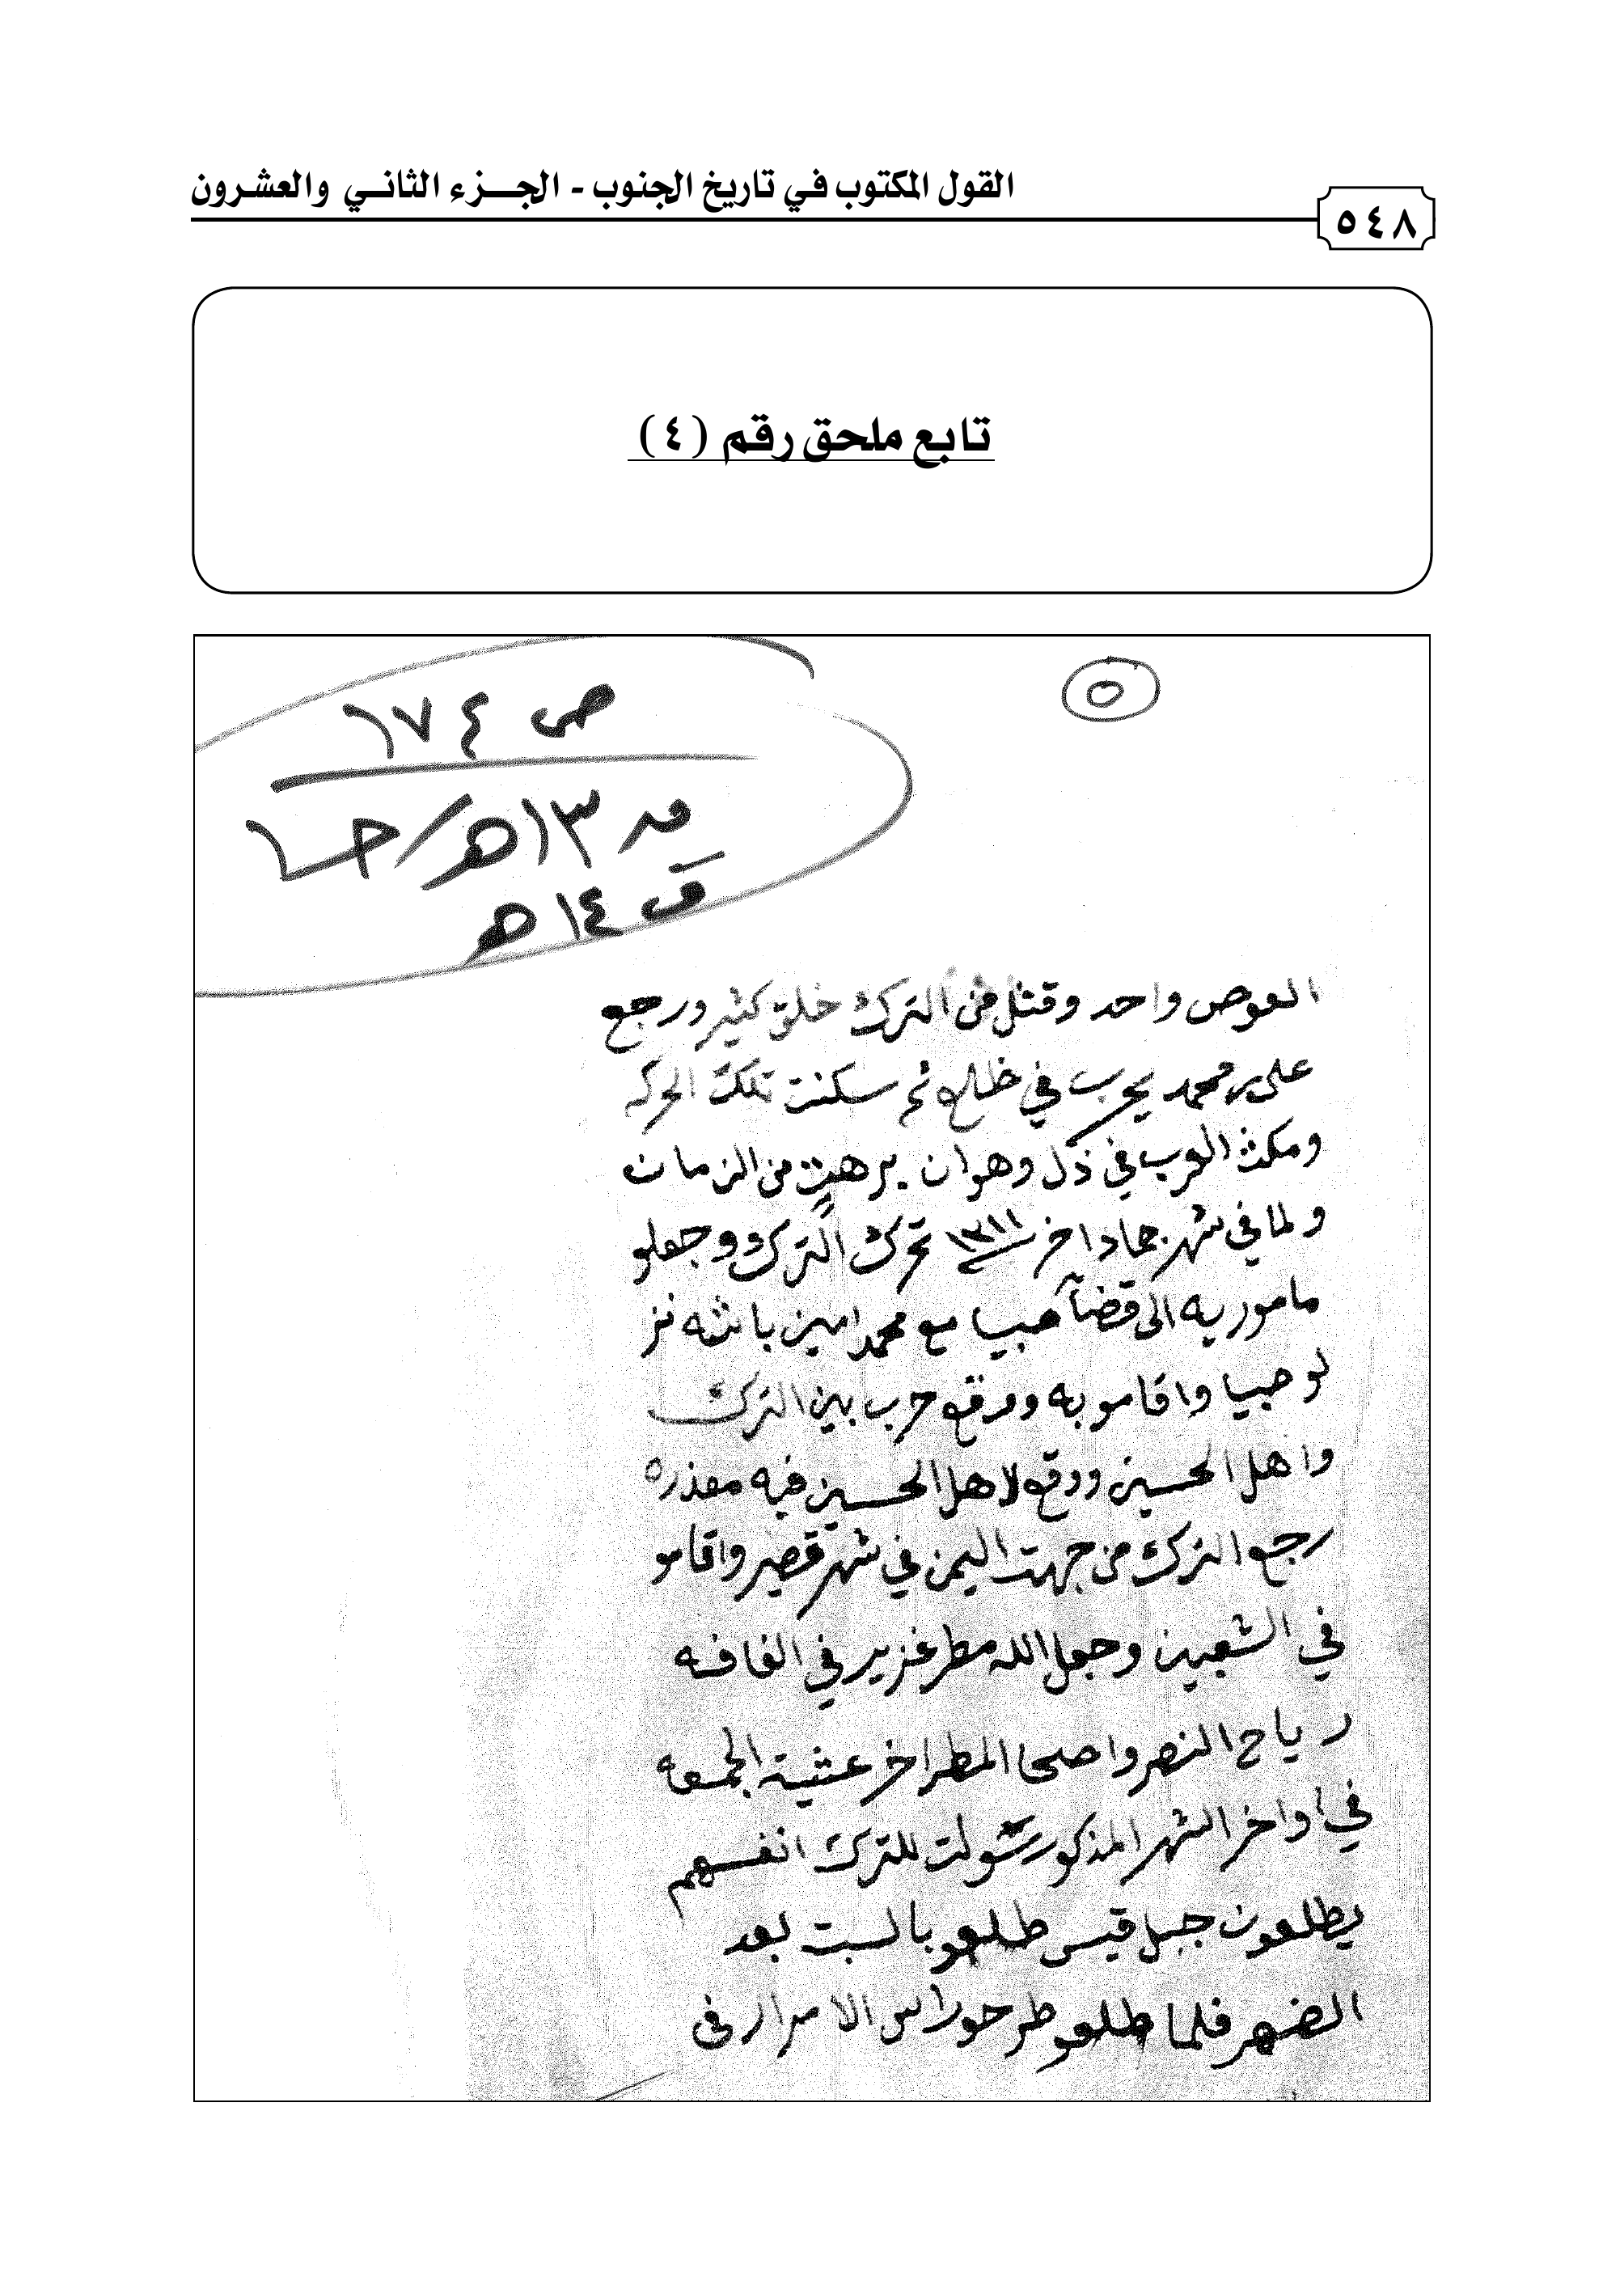 القول المكتوب في تاريخ الجنوب - الجـــزء الثانـي والعشـرون
٥٤٨
تابع ملحق رقم (٤)
٥
ص ١٧٤
ق ١٣هـ/
ق ١٤ هـ
العوص واحد وقتل من الترك خلق كثير ورجع
على بر محمد يحرب في ضلع ثم سكنت تلك الحركه
ومكث العرب في ذل وهوان برهت من الزمان
ولما في شهر جماد اخر ١٣١١ تحرك الترك وجعلو
ماموريه الى قضآ صبيا مع محمد امين باشه نز
لو صبيا واقامو به ووقع حرب بين الترك
واهل الحسين ووقع لاهل الحسين فيه معذره
رجع الترك من جهت اليمن في شهر قصير واقامو
في الشعبين وجعل الله مطر غزير في الغافه
رياح النصر واصحا المطر اخر عشية الجمعه
في اواخر الشهر المذكور سولت للترك انفسهم
يطلعون جبل قيس طلعو بالسبت بعد
الضهر فلما طلعو طرحو راس الامرار في